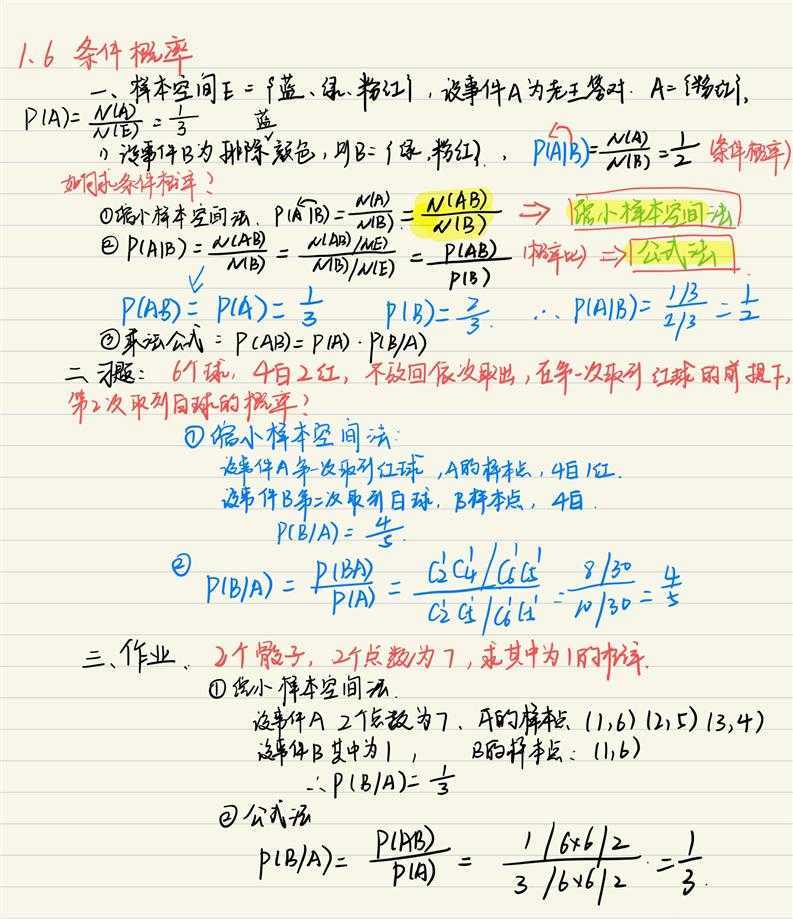 1.6 条件概率
一、样本空间E={蓝、绿、粉红}，设事件A为老王答对. A={粉红},
P(A)=N(A)/N(E)=1/3
1) 设事件B为排除蓝颜色，则B={绿,粉红}, P(A|B)=N(A)/N(B)=1/2 (条件概率)
如何求条件概率？
①缩小样本空间法. P(A|B)=N(A)/N(B)=N(AB)/N(B) ⇒ 缩小样本空间法
② P(A|B)=N(AB)/N(B)=N(AB)/N(E)/N(B)/N(E)=P(AB)/P(B) (概率比) ⇒ 公式法
P(AB)=P(A)=1/3 P(B)=2/3. ∴P(A|B)=1/3/2/3=1/2
③乘法公式：P(AB)=P(A)·P(B/A)
二、习题：6个球，4白2红，不放回依次取出，在第一次取到红球的前提下，
第2次取到白球的概率？
①缩小样本空间法：
设事件A第一次取到红球，A的样本点，4白1红.
设事件B第二次取到白球，B样本点，4白.
P(B/A)=4/5.
② P(B/A)=P(BA)/P(A)=C2^1C4^1/C6^1C5^1/C2^1C5^1/C6^1C5^1=8/30/10/30=4/5
三、作业、2个骰子，2个点数为7，求其中为1的概率.
①缩小样本空间法.
设事件A 2个点数为7、A的样本点 (1,6)(2,5)(3,4)
设事件B其中为1， B的样本点：(1,6)
∴P(B/A)=1/3
②公式法
P(B/A)=P(AB)/P(A)=1/6×6/2/3/6×6/2=1/3.